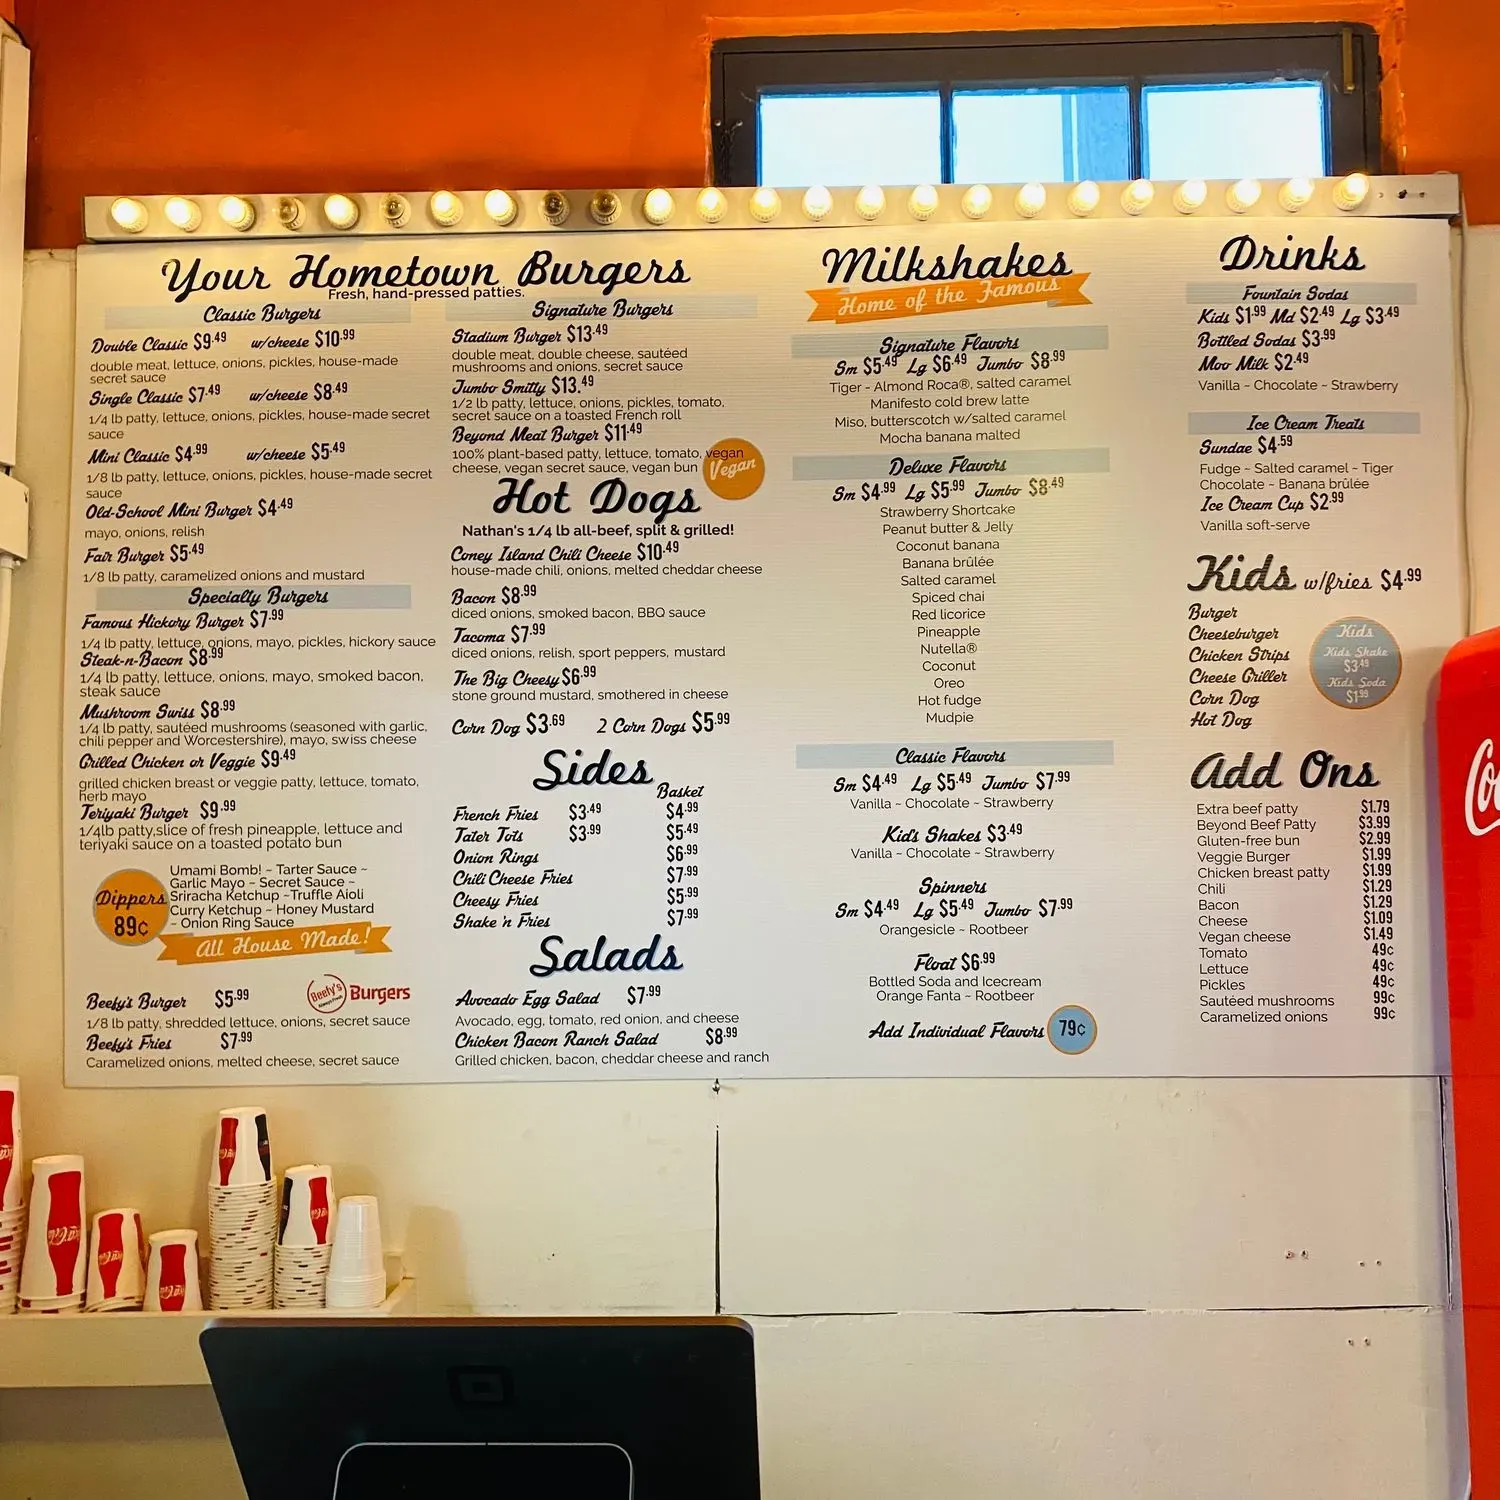 Your Hometown Burgers
Fresh, hand-pressed patties.
Classic Burgers
Double Classic $9.49 w/cheese $10.99
double meat, lettuce, onions, pickles, house-made
secret sauce
Single Classic $7.49 w/cheese $8.49
1/4 lb patty, lettuce, onions, pickles, house-made secret
sauce
Mini Classic $4.99 w/cheese $5.49
1/8 lb patty, lettuce, onions, pickles, house-made secret
sauce
Old-School Mini Burger $4.49
mayo, onions, relish
Fair Burger $5.49
1/8 lb patty, caramelized onions and mustard
Specialty Burgers
Famous Hickory Burger $7.99
1/4 lb patty, lettuce, onions, mayo, pickles, hickory sauce
Steak-n-Bacon $8.99
1/4 lb patty, lettuce, onions, mayo, smoked bacon,
steak sauce
Mushroom Swiss $8.99
1/4 lb patty, sautéed mushrooms (seasoned with garlic,
chili pepper and Worcestershire), mayo, swiss cheese
Grilled Chicken or Veggie $9.49
grilled chicken breast or veggie patty, lettuce, tomato,
herb mayo
Teriyaki Burger $9.99
1/4lb patty,slice of fresh pineapple, lettuce and
teriyaki sauce on a toasted potato bun
Dippers
89¢
Umami Bomb! ~ Tarter Sauce ~
Garlic Mayo ~ Secret Sauce ~
Sriracha Ketchup ~Truffle Aioli
Curry Ketchup ~ Honey Mustard
~ Onion Ring Sauce
All House Made!
Beefy's Burgers
Beefy's Burger $5.99
1/8 lb patty, shredded lettuce, onions, secret sauce
Beefy's Fries $7.99
Caramelized onions, melted cheese, secret sauce
Signature Burgers
Stadium Burger $13.49
double meat, double cheese, sautéed
mushrooms and onions, secret sauce
Jumbo Smitty $13.49
1/2 lb patty, lettuce, onions, pickles, tomato,
secret sauce on a toasted French roll
Beyond Meat Burger $11.49
100% plant-based patty, lettuce, tomato, vegan
cheese, vegan secret sauce, vegan bun
Vegan
Hot Dogs
Nathan's 1/4 lb all-beef, split & grilled!
Coney Island Chili Cheese $10.49
house-made chili, onions, melted cheddar cheese
Bacon $8.99
diced onions, smoked bacon, BBQ sauce
Tacoma $7.99
diced onions, relish, sport peppers, mustard
The Big Cheesy $6.99
stone ground mustard, smothered in cheese
Corn Dog $3.69 2 Corn Dogs $5.99
Sides
Basket
French Fries $3.49 $4.99
Tater Tots $3.99 $5.49
Onion Rings $6.99
Chili Cheese Fries $7.99
Cheesy Fries $5.99
Shake 'n Fries $7.99
Salads
Avocado Egg Salad $7.99
Avocado, egg, tomato, red onion, and cheese
Chicken Bacon Ranch Salad $8.99
Grilled chicken, bacon, cheddar cheese and ranch
Milkshakes
Home of the Famous
Signature Flavors
Sm $5.49 Lg $6.49 Jumbo $8.99
Tiger - Almond Roca®, salted caramel
Manifesto cold brew latte
Miso, butterscotch w/salted caramel
Mocha banana malted
Deluxe Flavors
Sm $4.99 Lg $5.99 Jumbo $8.49
Strawberry Shortcake
Peanut butter & Jelly
Coconut banana
Banana brûlée
Salted caramel
Spiced chai
Red licorice
Pineapple
Nutella®
Coconut
Oreo
Hot fudge
Mudpie
Classic Flavors
Sm $4.49 Lg $5.49 Jumbo $7.99
Vanilla ~ Chocolate ~ Strawberry
Kid's Shakes $3.49
Vanilla ~ Chocolate ~ Strawberry
Spinners
Sm $4.49 Lg $5.49 Jumbo $7.99
Orangesicle ~ Rootbeer
Float $6.99
Bottled Soda and Icecream
Orange Fanta ~ Rootbeer
Add Individual Flavors 79¢
Drinks
Fountain Sodas
Kids $1.99 Md $2.49 Lg $3.49
Bottled Sodas $3.99
Moo Milk $2.49
Vanilla ~ Chocolate ~ Strawberry
Ice Cream Treats
Sundae $4.59
Fudge ~ Salted caramel ~ Tiger
Chocolate ~ Banana brûlée
Ice Cream Cup $2.99
Vanilla soft-serve
Kids w/fries $4.99
Burger
Cheeseburger
Chicken Strips
Cheese Griller
Corn Dog
Hot Dog
Kids
Kids Shake
$3.49
Kids Soda
$1.99
Add Ons
Extra beef patty $1.79
Beyond Beef Patty $3.99
Gluten-free bun $2.99
Veggie Burger $1.99
Chicken breast patty $1.99
Chili $1.29
Bacon $1.29
Cheese $1.09
Vegan cheese $1.49
Tomato 49¢
Lettuce 49¢
Pickles 49¢
Sautéed mushrooms 99¢
Caramelized onions 99¢
Coca-Cola
Coca-Cola